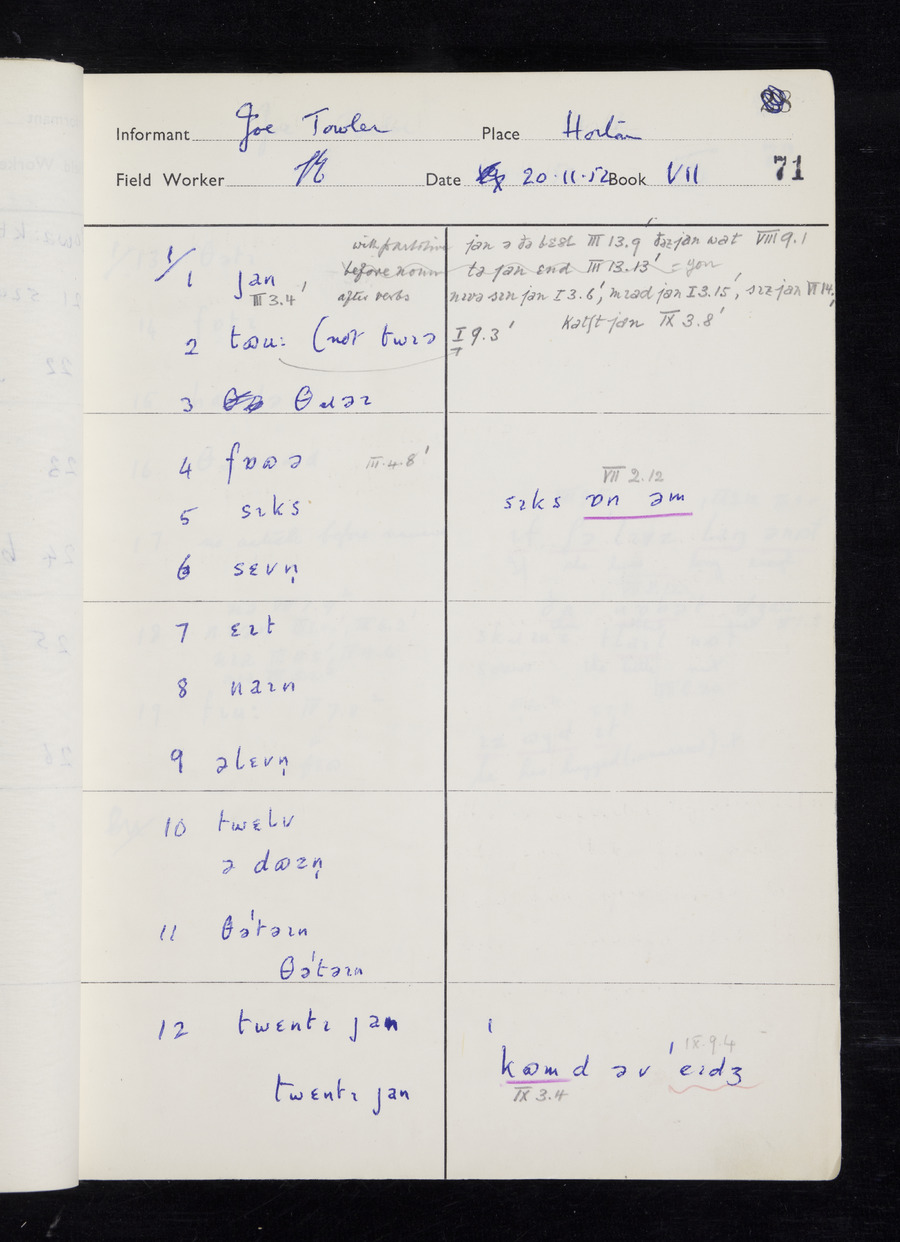 Informant Joe Towler Place Horton
Field Worker Date 20.11.52 Book VII 71
1/ 1 jan
III 3.4'
with partitive jan ə ðə bɛst III 13.9' VIII 9.1
before noun tə jan ɛnd III 13.13' = you
after verbs nɪvə sɪn jan I 3.6', mɪəd jan I 3.15', sɪz jan VI 14.
katʃt jan IX 3.8'
2 tɷu: (not twɪə I 9.3'
3 θɹəɪ
4 fɒɷə III.4.8'
5 sɪks
VII 2.12
sɪks ɒn əm
6 sɛvn̩
7 ɛɪt
8 naɪn
9 əlɛvn̩
10 twɛlv
ə dɷzn̩
11 θə'təɪn
θə'təɪn
12 twɛntɪ jan
kɷmd əv 'eɪdʒ IX.9.4
IX 3.4
twɛntɪ jan